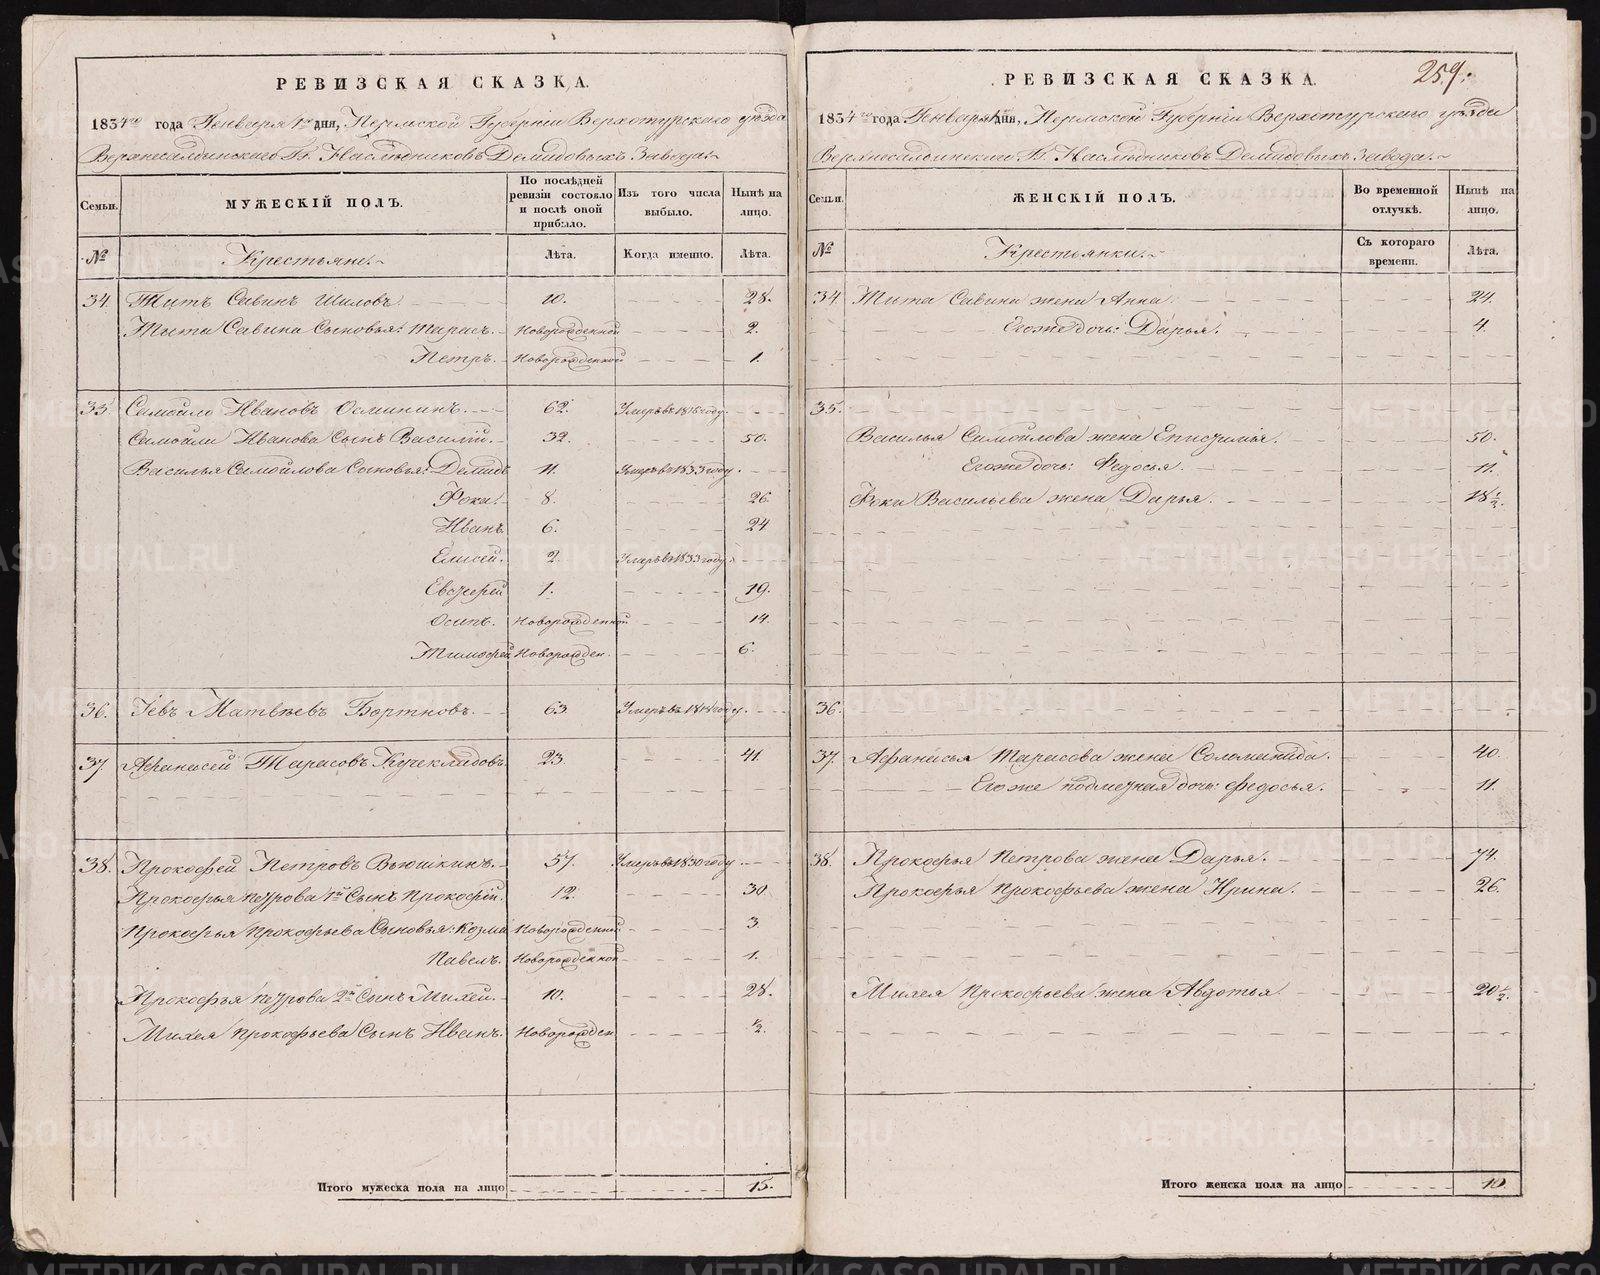 РЕВИЗСКАЯ СКАЗКА.
1834го года Генваря 1го дня, Пермской Губерніи Верхотурскаго уѣзда
Верхнесалдинскаго Гг. Наслѣдниковъ Демидовыхъ Завода:
Семьи. МУЖЕСКІЙ ПОЛЪ. По послѣдней ревизіи состояло и послѣ оной прибыло. Изъ того числа выбыло. Нынѣ на лицо.
№ Крестьяне: Лѣта. Когда именно. Лѣта.
34. Титъ Савинъ Шиловъ 10. 28.
Тита Савина Сыновья: Тарасъ. Новорожденной 2.
Петръ. Новорожденной 1.
35. Самойло Ивановъ Осининъ. 62. Умеръ въ 1816 году.
Самойли Иванова Сынъ Василій. 32. 50.
Василья Самойлова Сыновья: Демидъ 11. Умеръ въ 1833 году.
Фока. 8. 26.
Иванъ. 6. 24
Елисей. 2. Умеръ въ 1833 году.
Евсефей 1. 19.
Осипъ. Новорожденной 14.
Тимофей Новорожден. 6.
36. Іевъ Матвѣевъ Бортновъ. 63. Умеръ въ 1818 году.
37. Афанасей Тарасовъ Кучеклидовъ. 23. 41.
38. Прокофей Петровъ Вьюшкинъ. 57. Умеръ въ 1830 году
Прокофья Петрова 1й Сынъ Прокофій. 12. 30
Прокофья Прокофьева Сыновья: Козма Новорожденной 3.
Павелъ. Новорожденной 1.
Прокофья Петрова 2й Сынъ Михей. 10. 28.
Михея Прокофьева Сынъ Иванъ. Новорожден 1/2.
Итого мужеска пола на лицо 15.
РЕВИЗСКАЯ СКАЗКА.
259.
1834го года Генваря 1 дня, Пермской Губерніи Верхотурскаго уѣзда
Верхнесалдинскаго Гг. Наслѣдниковъ Демидовыхъ Завода:
Семьи. ЖЕНСКІЙ ПОЛЪ. Во временной отлучкѣ. Нынѣ на лицо.
№ Крестьянки: Съ котораго времени. Лѣта.
34. Тита Савина жена Анна 24.
Егоже дочь: Дарья. 4.
35.
Василья Самойлова жена Епистимія. 50.
Егоже дочь: Федосья. 11.
Фоки Васильева жена Дарья. 18 1/2.
36.
37. Афанасья Тарасова жена Соломанида. 40.
Егоже подметная дочь: Федосья. 11.
38. Прокофья Петрова жена Дарья. 74.
Прокофья Прокофьева жена Ирина. 26.
Михея Прокофьева жена Авдотья 20 1/2.
Итого женска пола на лицо 10.
METRIKI.GASO-URAL.RU